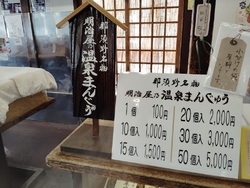 那須野名物
明治屋乃温泉まんじゅう
那須野名物
明治屋乃 温泉まんじゅう
1個 100円
10個 1,000円
15個 1,500円
20個 2,000円
30個 3,000円
50個 5,000円